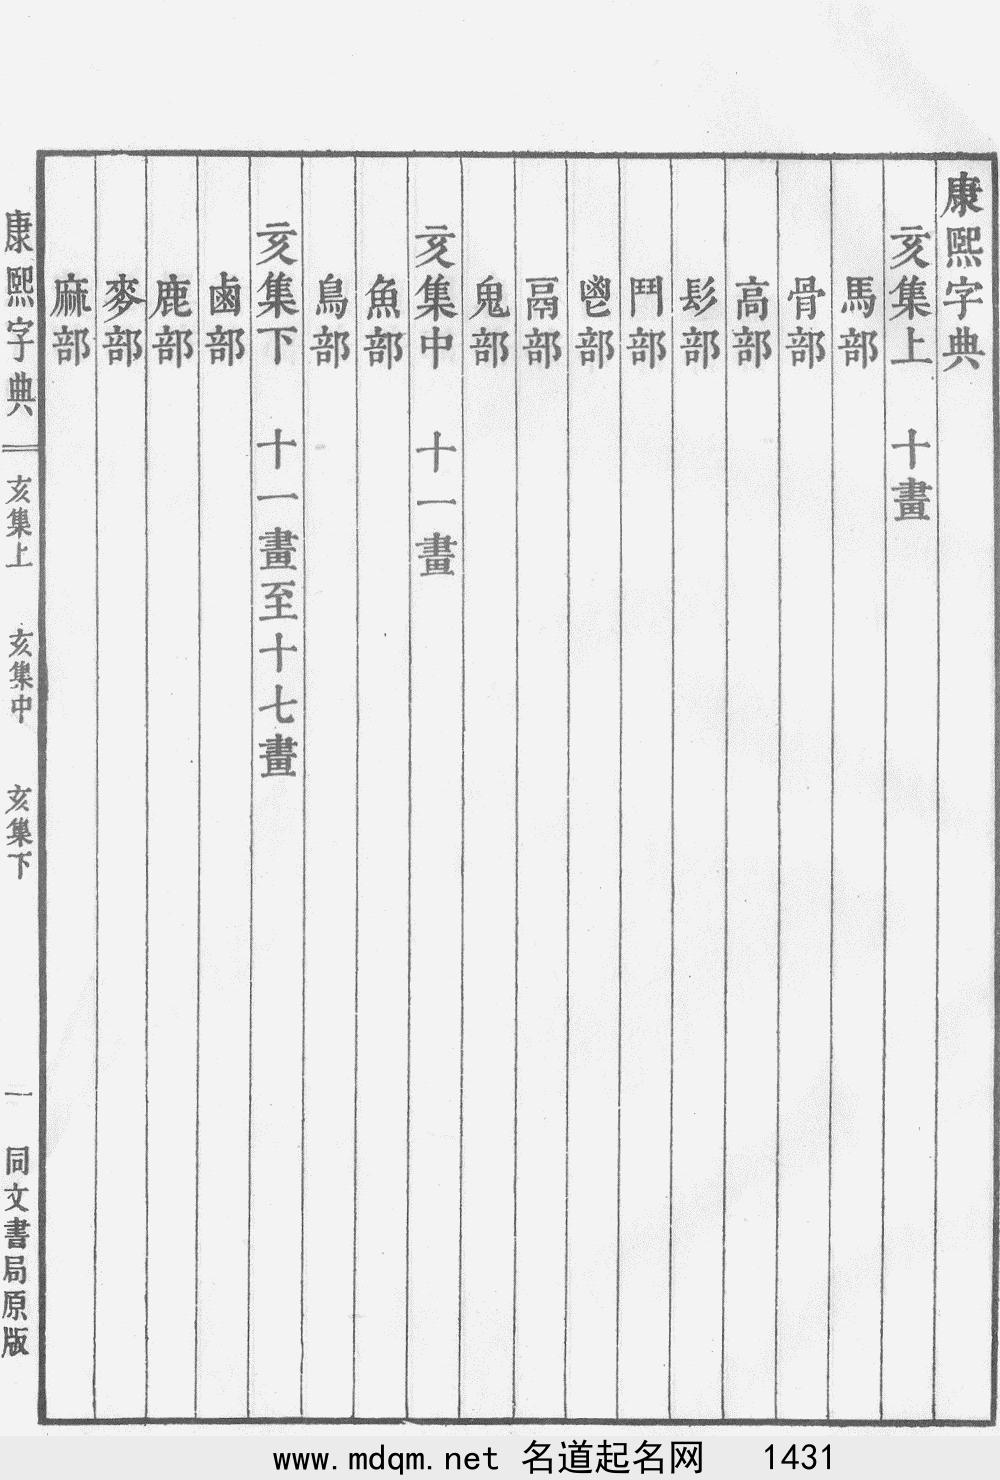 康熙字典
亥集上　十畫
馬部
骨部
高部
髟部
鬥部
鬯部
鬲部
鬼部
亥集中　十一畫
魚部
鳥部
亥集下　十一畫至十七畫
鹵部
鹿部
麥部
麻部
康熙字典　亥集上　亥集中　亥集下　一　同文書局原版
www.mdqm.net 名道起名网 1431